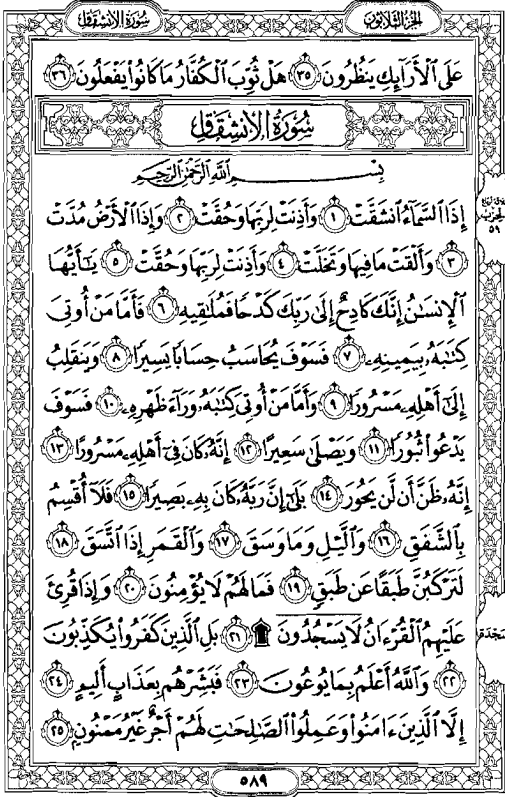 سُورَةُ الانشِقَاقِ
الجُزْءُ الثَّلَاثُونَ
عَلَى ٱلْأَرَآئِكِ يَنظُرُونَ ٣٥ هَلْ ثُوِّبَ ٱلْكُفَّارُ مَا كَانُوا۟ يَفْعَلُونَ ٣٦
سُورَةُ الانشِقَاقِ
بِسْمِ ٱللَّهِ ٱلرَّحْمَٰنِ ٱلرَّحِيمِ
إِذَا ٱلسَّمَآءُ ٱنشَقَّتْ ١ وَأَذِنَتْ لِرَبِّهَا وَحُقَّتْ ٢ وَإِذَا ٱلْأَرْضُ مُدَّتْ
٣ وَأَلْقَتْ مَا فِيهَا وَتَخَلَّتْ ٤ وَأَذِنَتْ لِرَبِّهَا وَحُقَّتْ ٥ يَٰٓأَيُّهَا
ٱلْإِنسَٰنُ إِنَّكَ كَادِحٌ إِلَىٰ رَبِّكَ كَدْحًا فَمُلَٰقِيهِ ٦ فَأَمَّا مَنْ أُوتِىَ
كِتَٰبَهُۥ بِيَمِينِهِۦ ٧ فَسَوْفَ يُحَاسَبُ حِسَابًا يَسِيرًا ٨ وَيَنقَلِبُ
إِلَىٰٓ أَهْلِهِۦ مَسْرُورًا ٩ وَأَمَّا مَنْ أُوتِىَ كِتَٰبَهُۥ وَرَآءَ ظَهْرِهِۦ ١٠ فَسَوْفَ
يَدْعُوا۟ ثُبُورًا ١١ وَيَصْلَىٰ سَعِيرًا ١٢ إِنَّهُۥ كَانَ فِىٓ أَهْلِهِۦ مَسْرُورًا ١٣
إِنَّهُۥ ظَنَّ أَن لَّن يَحُورَ ١٤ بَلَىٰٓ إِنَّ رَبَّهُۥ كَانَ بِهِۦ بَصِيرًا ١٥ فَلَآ أُقْسِمُ
بِٱلشَّفَقِ ١٦ وَٱلَّيْلِ وَمَا وَسَقَ ١٧ وَٱلْقَمَرِ إِذَا ٱتَّسَقَ ١٨
لَتَرْكَبُنَّ طَبَقًا عَن طَبَقٍ ١٩ فَمَا لَهُمْ لَا يُؤْمِنُونَ ٢٠ وَإِذَا قُرِئَ
عَلَيْهِمُ ٱلْقُرْءَانُ لَا يَسْجُدُونَ ۩ ٢١ بَلِ ٱلَّذِينَ كَفَرُوا۟ يُكَذِّبُونَ
٢٢ وَٱللَّهُ أَعْلَمُ بِمَا يُوعُونَ ٢٣ فَبَشِّرْهُم بِعَذَابٍ أَلِيمٍ ٢٤
إِلَّا ٱلَّذِينَ ءَامَنُوا۟ وَعَمِلُوا۟ ٱلصَّٰلِحَٰتِ لَهُمْ أَجْرٌ غَيْرُ مَمْنُونٍۭ ٢٥
الحزب
٥٩
سَجْدَة
٥٨٩